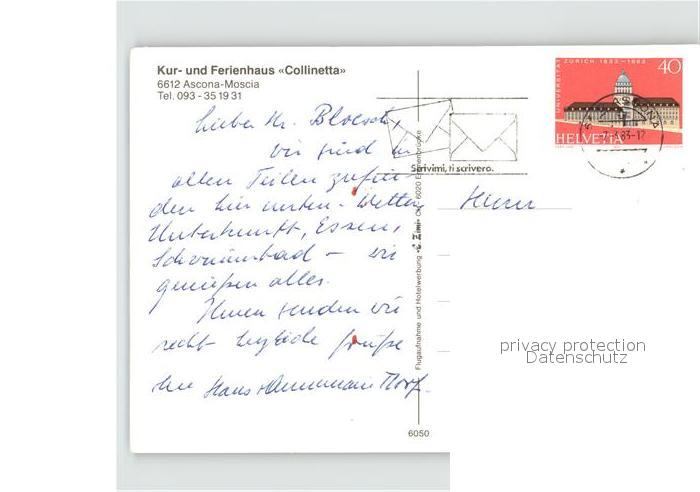 Kur- und Ferienhaus «Collinetta»
6612 Ascona-Moscia
Tel. 093 - 35 19 31
UNIVERSITÄT ZÜRICH 1833-1983
40
HELVETIA
Scrivimi, ti scriverò.
Lieber Hr.
wir sind in
allen Teilen zufrie-
den hier unten. Wetter,
Unterkunft, Essen,
Schwimmbad – wir
genießen alles.
Ihnen senden wir
recht herzliche Grüße
Ihre Hans + Annemarie
Herrn
Flugaufnahme und Hotelwerbung «C. Zimi» CH 6020 Emmenbrücke
6050
privacy protection
Datenschutz